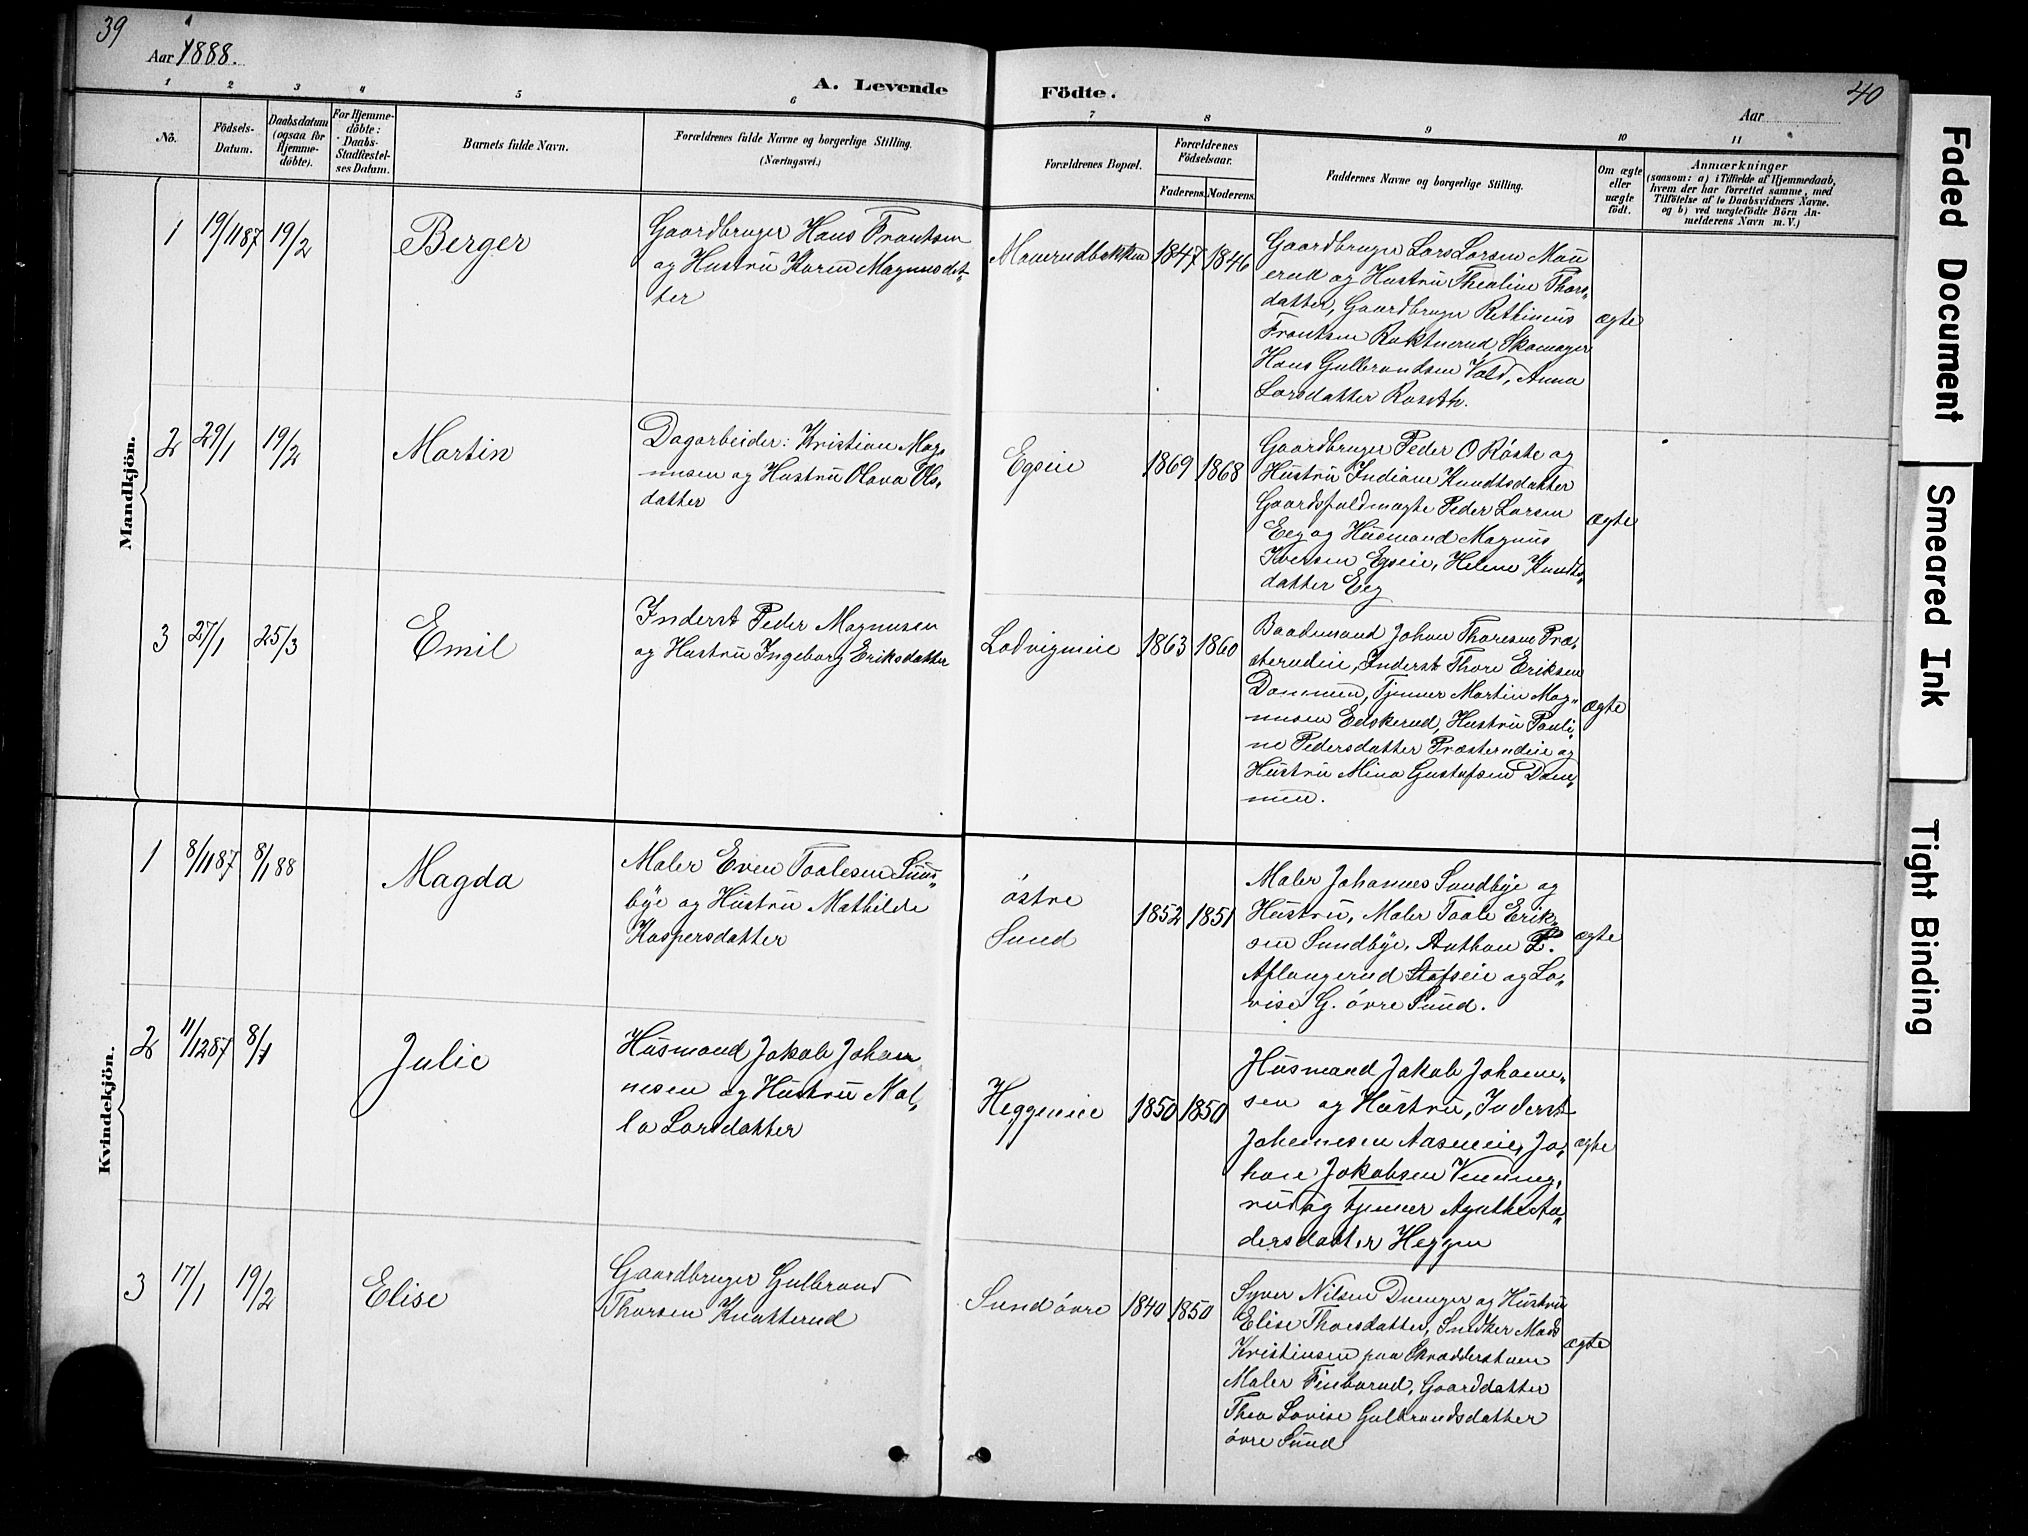 39
Aar 1888.
A. Levende Födte.
Aar
40
1 2 3 4 5 6 7 8 9 10 11
No.
Födsels-
Datum.
Daabsdatum
(ogsaa for
Hjemme-
döbte).
For Hjemme-
döbte:
Daabs-
Stadfæstel-
ses Datum.
Barnets fulde Navn.
Forældrenes fulde Navne og borgerlige Stilling.
(Næringsvei.)
Forældrenes Bopæl.
Forældrenes
Födselsaar.
Faderens. Moderens.
Faddernes Navne og borgerlige Stilling.
Om ægte
eller
uægte
födt.
Anmærkninger
(saasom: a) i Tilfælde af Hjemmedaab,
hvem der har forrettet samme, med
Tilföielse af to Daabsvidners Navne.
og b) ved uægtefödte Börn An-
melderens Navn m. V.)
Mandkjön.
1 19/11 87 19/2 Berger
Gaardbruger Hans Frantsen
og Hustru Karen Magnusdat-
ter
Mauerudbakken 1847 1846
Gaardbruger Lars Larsen Mau
erud og Hustru Thealine Thors-
datter, Gaardbruger
Frantsen Skomager
Hans Gulbrandsen Vold, Anna
Larsdatter
ægte
2 29/1 19/2 Martin
Dagarbeider: Kristian Mag-
nusen og Hustru Olava Ols-
datter
Egseie 1869 1868
Gaardbruger Peder O Röste og
Hustru Indiane Knudtsdatter
Gaardsfuldmægte Peder Larsen
Eeg og Husmand Magnus
Iversen Egseie, Helene Knudts-
datter Eeg
ægte
3 27/1 25/3 Emil
Inderst Peder Magnusen
og Hustru Ingeborg Eriksdatter
Lodvigseie 1863 1860
Baadsmand Johan Thoresen Præ-
sterudeie, Inderst Thore Eriksen
Dammen, Tjener Martin Mag-
nusen Edskerud, Hustru Pauli-
ne Pedersdatter Præsterudeie og
Hustru Mina Gustafsen Dam-
men.
ægte
Kvindekjön.
1 8/11 87 8/1 88 Magda
Maler Even Taalesen Sun-
bye og Hustru Mathilde
Kaspersdatter
östre
Sund
1852 1851
Maler Johannes Sundbye og
Hustru, Maler Taale Erik-
sen Sundbye, Anthon P.
Aflangerud Stafseie og Lo-
vise G. övre Sund.
ægte
2 11/12 87 8/1 Julie
Husmand Jakob Johan
nesen og Hustru Mal-
la Larsdatter
Heggeneie 1850 1850
Husmand Jakob Johanne-
sen og Hustru, Inderst
Johannesen Aaseneie, Jo-
han Jakobsen
rud og Tjener Agathe An-
dersdatter Heggen
ægte
3 17/1 19/2 Elise
Gaardbruger Gulbrand
Thorsen Knatterud
Sund övre 1840 1850
Syver Nilsen Dsenger og Hustru
Elise Thorsdatter, Snedker Mads
Kristiansen paa Skrædderstuen
Maler Finborud, Gaarddatter
Thea Lovise Gulbrandsdatter
övre Sund
ægte
Faded Document
Smeared Ink
Tight Binding